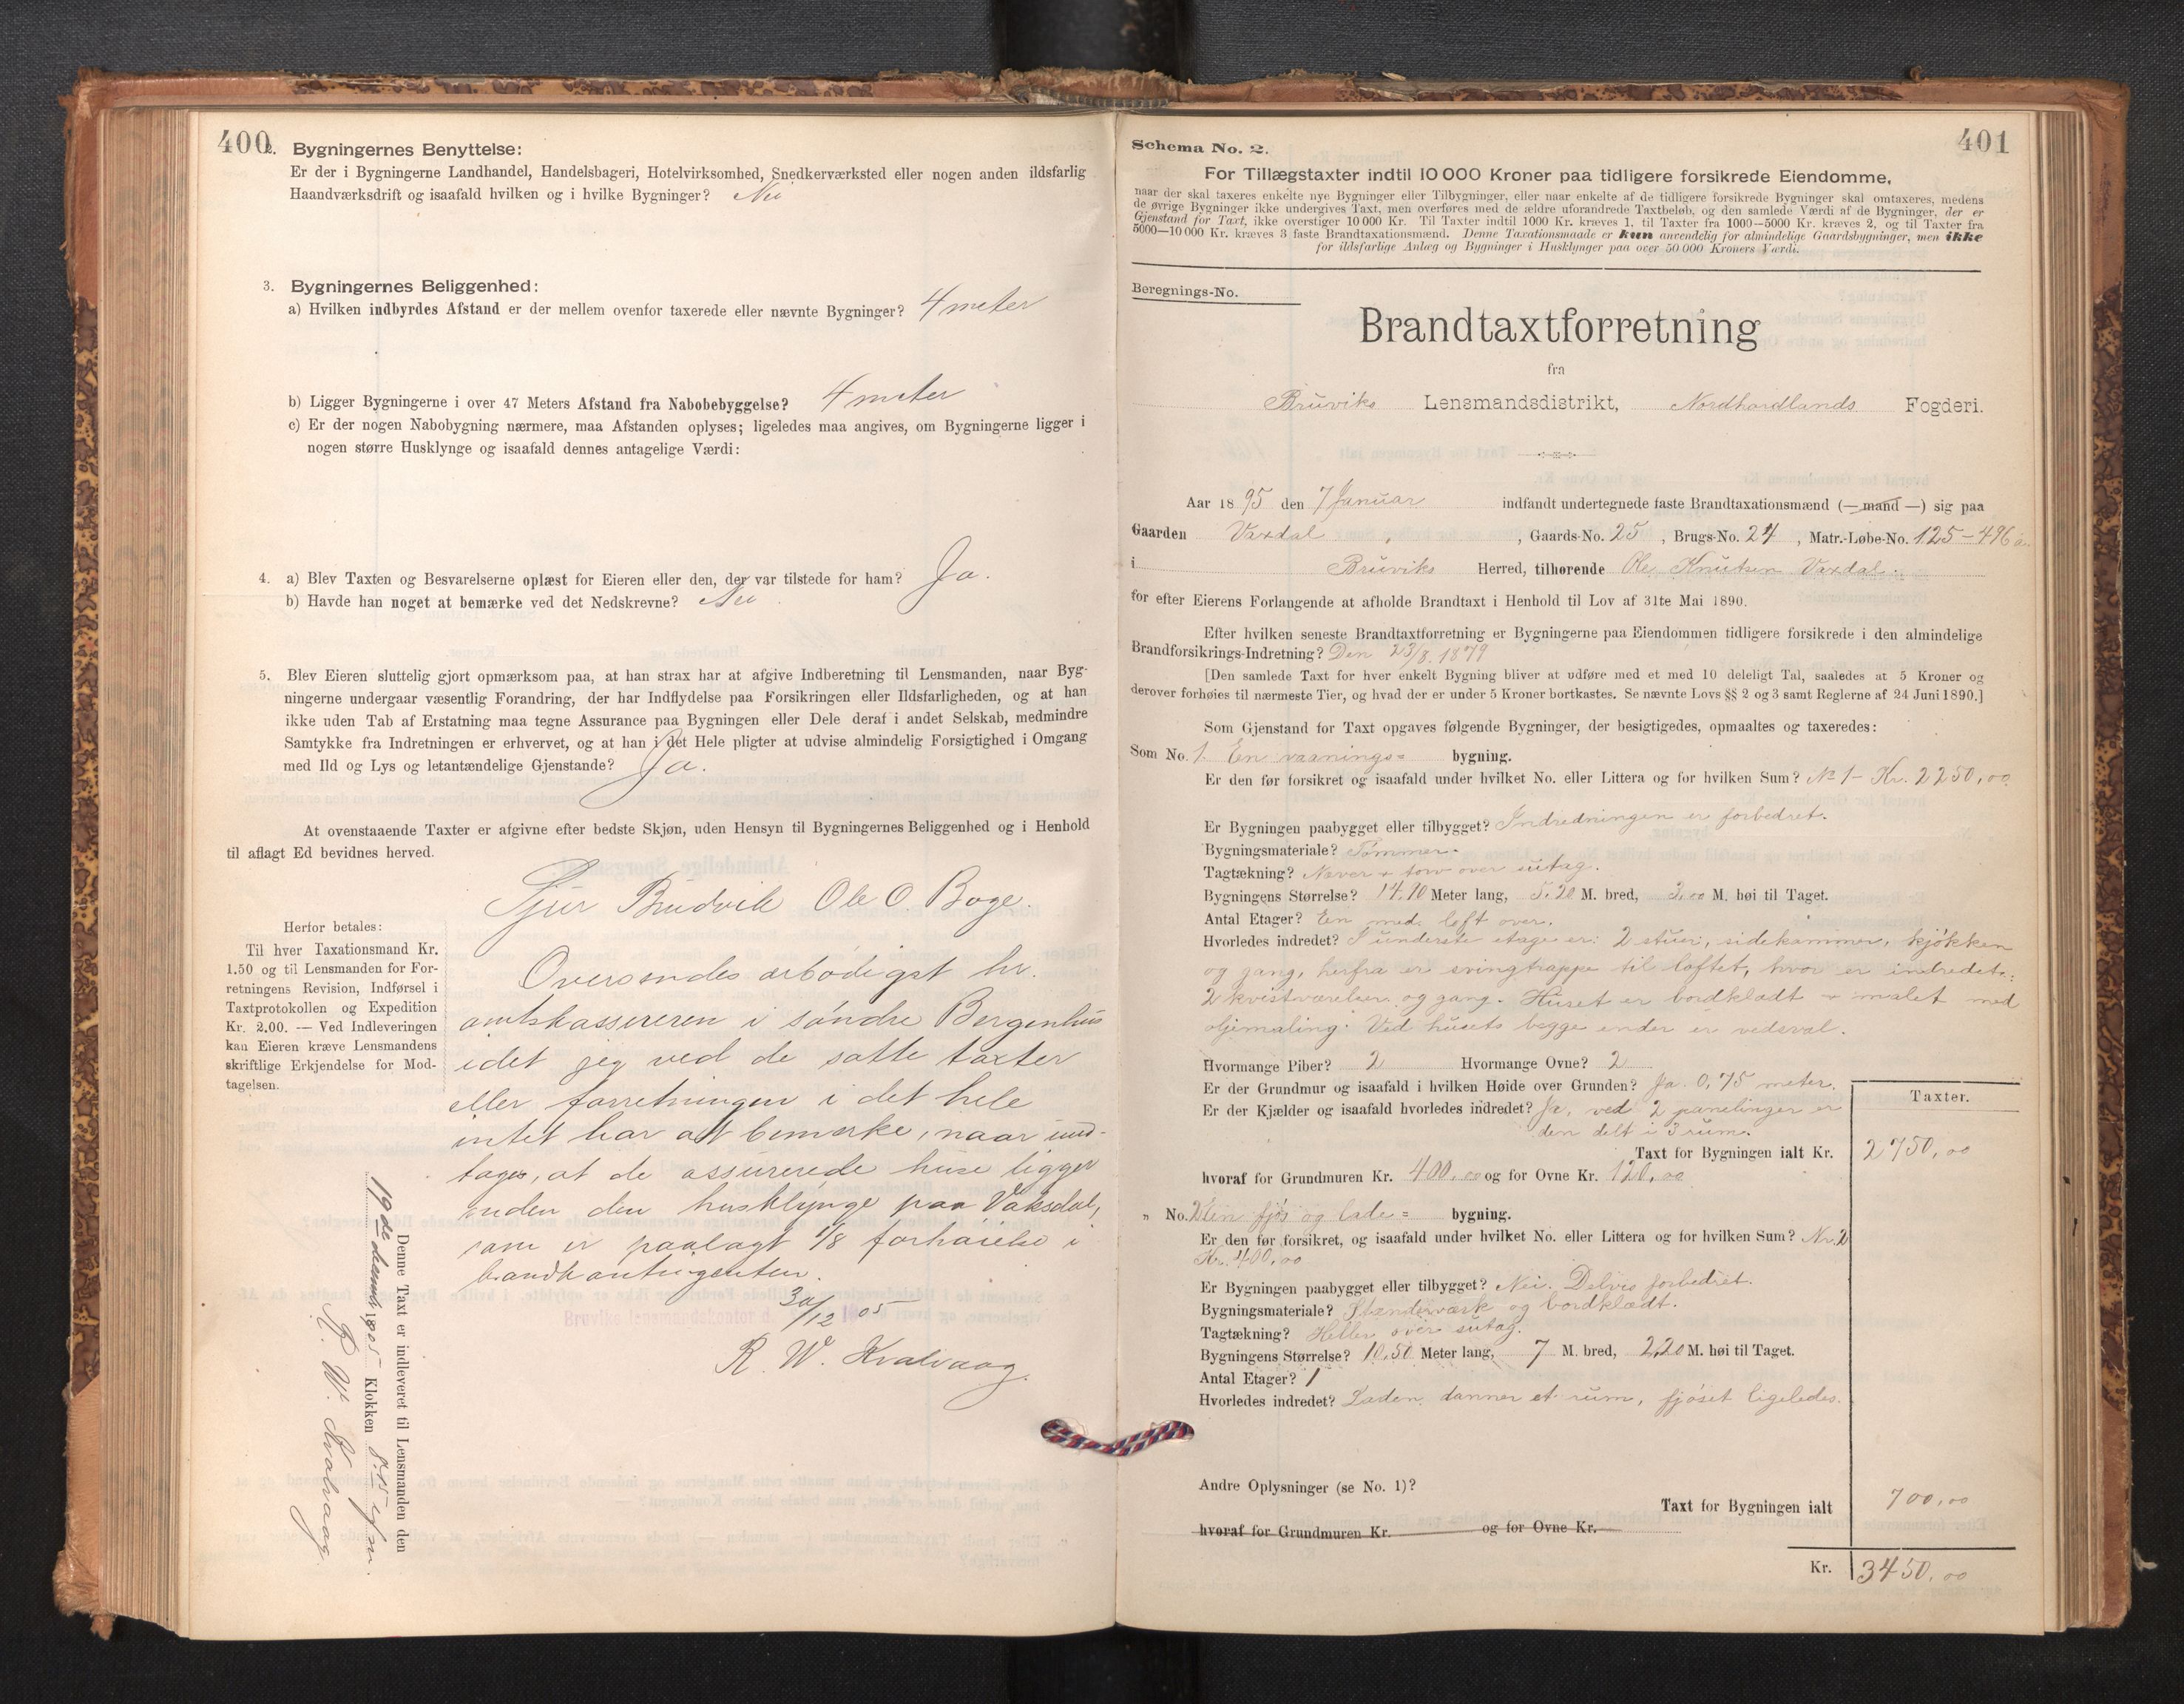 400
2. Bygningernes Benyttelse:
Er der i Bygningerne Landhandel, Handelsbageri, Hotelvirksomhed, Snedkerværksted eller nogen anden ildsfarlig
Haandværksdrift og isaafald hvilken og i hvilke Bygninger? Nei
3. Bygningernes Beliggenhed:
a) Hvilken indbyrdes Afstand er der mellem ovenfor taxerede eller nævnte Bygninger? 4 meter
b) Ligger Bygningerne i over 47 Meters Afstand fra Nabobebyggelse? 4 meter
c) Er der nogen Nabobygning nærmere, maa Afstanden oplyses; ligeledes maa angives, om Bygningerne ligger i
nogen større Husklynge og isaafald dennes antagelige Værdi:
4. a) Blev Taxten og Besvarelserne oplæst for Eieren eller den, der var tilstede for ham? Ja.
b) Havde han noget at bemærke ved det Nedskrevne? Nei
5. Blev Eieren sluttelig gjort opmærksom paa, at han strax har at afgive Indberetning til Lensmanden, naar Byg-
ningerne undergaar væsentlig Forandring, der har Indflydelse paa Forsikringen eller Ildsfarligheden, og at han
ikke uden Tab af Erstatning maa tegne Assurance paa Bygningen eller Dele deraf i andet Selskab, medmindre
Samtykke fra Indretningen er erhvervet, og at han i det Hele pligter at udvise almindelig Forsigtighed i Omgang
med Ild og Lys og letantændelige Gjenstande? Ja.
At ovenstaaende Taxter er afgivne efter bedste Skjøn, uden Hensyn til Bygningernes Beliggenhed og i Henhold
til aflagt Ed bevidnes herved.
Sjur Brudvik Ole O Boge.
Herfor betales:
Til hver Taxationsmand Kr.
1.50 og til Lensmanden for For-
retningens Revision, Indførsel i
Taxtprotokollen og Expedition
Kr. 2,00. — Ved Indleveringen
kan Eieren kræve Lensmandens
skriftlige Erkjendelse for Mod-
tagelsen.
Oversendes ærbødigst hr.
amtskassereren i søndre Bergenhus
idet jeg ved de satte taxter
eller forretningen i det hele
intet har at bemærke, naar und-
tages, at de assurerede huse ligger
inden den husklynge paa Vaksdal,
som er paalagt 1/8 forhøielse i
brandkontingenten.
Bruviks lensmandskontor d. 30/12 1905
R. W. Kvalvaag.
Denne Taxt er indleveret til Lensmanden den
19de decemb 1905 Klokken 8.15 efm.
R. W. Kvalvaag.
401
Schema No. 2.
For Tillægstaxter indtil 10 000 Kroner paa tidligere forsikrede Eiendomme,
naar der skal taxeres enkelte nye Bygninger eller Tilbygninger, eller naar enkelte af de tidligere forsikrede Bygninger skal omtaxeres, medens
de øvrige Bygninger ikke undergives Taxt, men overføres med de ældre uforandrede Taxtbeløb, og den samlede Værdi af de Bygninger, der er
Gjenstand for Taxt, ikke overstiger 10 000 Kr. Til Taxter indtil 1000 Kr. kræves 1, til Taxter fra 1000—5000 Kr. kræves 2, og til Taxter fra
5000—10 000 Kr. kræves 3 faste Brandtaxationsmænd. Denne Taxationsmaade er kun anvendelig for almindelige Gaardsbygninger, men ikke
for ildsfarlige Anlæg og Bygninger i Husklynger paa over 50 000 Kroners Værdi.
Beregnings-No.
Brandtaxtforretning
fra
Bruviks Lensmandsdistrikt, Nordhordlands Fogderi.
Aar 1895 den 7 Januar indfandt undertegnede faste Brandtaxationsmænd (— mand —) sig paa
Gaarden Vaxdal, Gaards-No. 25, Brugs-No. 24, Matr.-Løbe-No. 125-496 a.
i Bruviks Herred, tilhørende Ole Knutsen Vaxdal.
for efter Eierens Forlangende at afholde Brandtaxt i Henhold til Lov af 31te Mai 1890.
Efter hvilken seneste Brandtaxtforretning er Bygningerne paa Eiendommen tidligere forsikrede i den almindelige
Brandforsikrings-Indretning? Den 23/8. 1879
[Den samlede Taxt for hver enkelt Bygning bliver at udføre med et med 10 deleligt Tal, saaledes at 5 Kroner og
derover forhøies til nærmeste Tier, og hvad der er under 5 Kroner bortkastes. Se nævnte Lovs §§ 2 og 3 samt Reglerne af 24 Juni 1890.]
Som Gjenstand for Taxt opgaves følgende Bygninger, der besigtigedes, opmaaltes og taxeredes:
Som No. 1. En vaanings= bygning.
Er den før forsikret og isaafald under hvilket No. eller Littera og for hvilken Sum? No 1 - Kr. 2250,00
Er Bygningen paabygget eller tilbygget? Indredningen er forbedret.
Bygningsmateriale? Tømmer.
Tagtækning? Næver + torv over sutag.
Bygningens Størrelse? 14.10 Meter lang, 5.20 M. bred, 3,00 M. høi til Taget.
Antal Etager? En med loft over.
Hvorledes indredet? I underste etage er: 2 stuer, sidekammer, kjøkken
og gang, herfra er svingtrappe til loftet, hvor er indredet:
2 kvistværelser og gang. Huset er bordklædt + malet med
oljemaling. Ved husets begge ender er vedsval.
Hvormange Piber? 2 Hvormange Ovne? 2
Er der Grundmur og isaafald i hvilken Høide over Grunden? Ja. 0,75 meter.
Er der Kjælder og isaafald hvorledes indredet? Ja, ved 2 panelinger er
den delt i 3 rum.
Taxter.
Taxt for Bygningen ialt Kr. 2750,00
hvoraf for Grundmuren Kr. 400,00 og for Ovne Kr. 120,00
" No. 2 en fjøs og lade= bygning.
Er den før forsikret, og isaafald under hvilket No. eller Littera og for hvilken Sum? Nr. 2
Kr. 400,00
Er Bygningen paabygget eller tilbygget? Nei. Delvis forbedret.
Bygningsmateriale? Stænderværk og bordklædt.
Tagtækning? Heller over sutag.
Bygningens Størrelse? 10,50 Meter lang, 7 M. bred, 2,20 M. høi til Taget.
Antal Etager? 1
Hvorledes indredet? Laden danner et rum, fjøset ligeledes.
Andre Oplysninger (se No. 1)?
Taxt for Bygningen ialt 700,00
hvoraf for Grundmuren Kr. og for Ovne Kr.
Kr. 3450,00